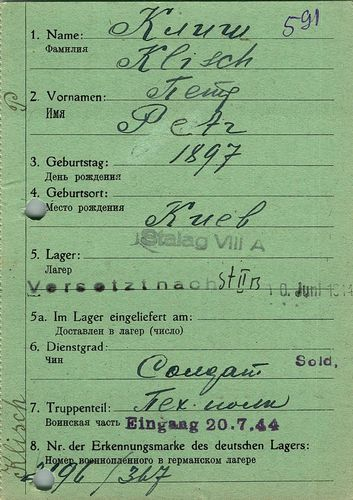 591
1. Name: Клиш
Фамилия
Klisch
2. Vornamen: Петр
Имя
Petr
3. Geburtstag: 1897
День рождения
4. Geburtsort:
Место рождения
Киев
Stalag VIII A
5. Lager:
Лагер
Versetzt nach St II B 10. Juni
5a. Im Lager eingeliefert am:
Доставлен в лагер (число)
6. Dienstgrad:
Чин
Солдат Sold.
7. Truppenteil: Пех. полк
Воинская часть Eingang 20.7.44
8. Nr. der Erkennungsmarke des deutschen Lagers:
Номер военнопленного в германском лагере
Klisch P
/367